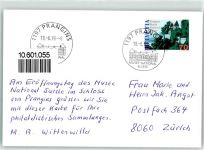 1197 PRANGINS
1197 PRANGINS
HELVETIA
10.601.055
Am Eröffnungstag des Musée
National Suisse im Schloss
von Prangins grüsst wir Sie
mit dieser Karte für Ihre
philatelistischen Sammlungen.
M. R. Wittenwiler
Frau Marie und
Herrn Jak. Angst
Postfach 364
8060 Zürich